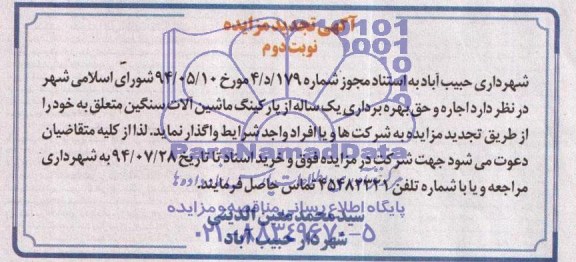 آگهی تجدید مزایده
نوبت دوم
شهرداری حبیب آباد به استناد مجوز شماره ۱۷۹/د/۴ مورخ ۹۴/۰۵/۱۰ شورای اسلامی شهر
در نظر دارد اجاره و حق بهره برداری یک ساله از پارکینگ ماشین آلات سنگین متعلق به خود را
از طریق تجدید مزایده به شرکت ها و یا افراد واجد شرایط واگذار نماید. لذا از کلیه متقاضیان
دعوت می شود جهت شرکت در مزایده فوق و خرید اسناد تا تاریخ ۹۴/۰۷/۲۸ به شهرداری
مراجعه و یا با شماره تلفن ۳۵۴۸۲۲۲۱ تماس حاصل فرمایند.
سید محمد معین الدینی
شهردار حبیب آباد
ParsNamadData
پایگاه اطلاع رسانی مناقصه و مزایده
۰۲۱-۸۸۳۴۹۶۷۰-۵